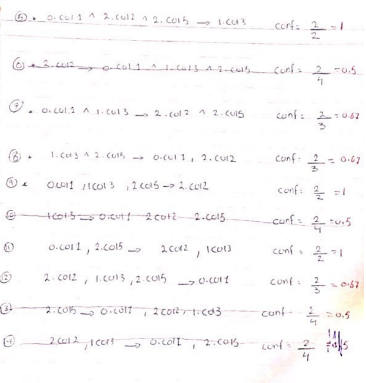 ⑤. 0.col1 ^ 2.col2 ^ 2.col5 → 1.col3 conf = 2/2 = 1
⑥. 2.col2 → 0.col1 ^ 1.col3 ^ 2.col5 conf = 2/4 = 0.5
⑦. 0.col1 ^ 1.col3 → 2.col2 ^ 2.col5 conf = 2/3 = 0.67
⑧. 1.col3 ^ 2.col5 → 0.col1, 2.col2 conf = 2/3 = 0.67
⑨. 0col1, 1col3, 2col5 → 2.col2 conf = 2/2 = 1
1col3 → 0.col1 2col2 2.col5 conf = 2/4 = 0.5
⑪ 0.col1, 2.col5 → 2col2, 1col3 conf = 2/2 = 1
⑫ 2.col2, 1.col3, 2.col5 → 0.col1 conf = 2/3 = 0.67
⑬ 2.col5 → 0.col1, 2col2, 1.col3 conf = 2/4 = 0.5
2col2, 1col3 → 0.col1, 2.col5 conf = 2/4